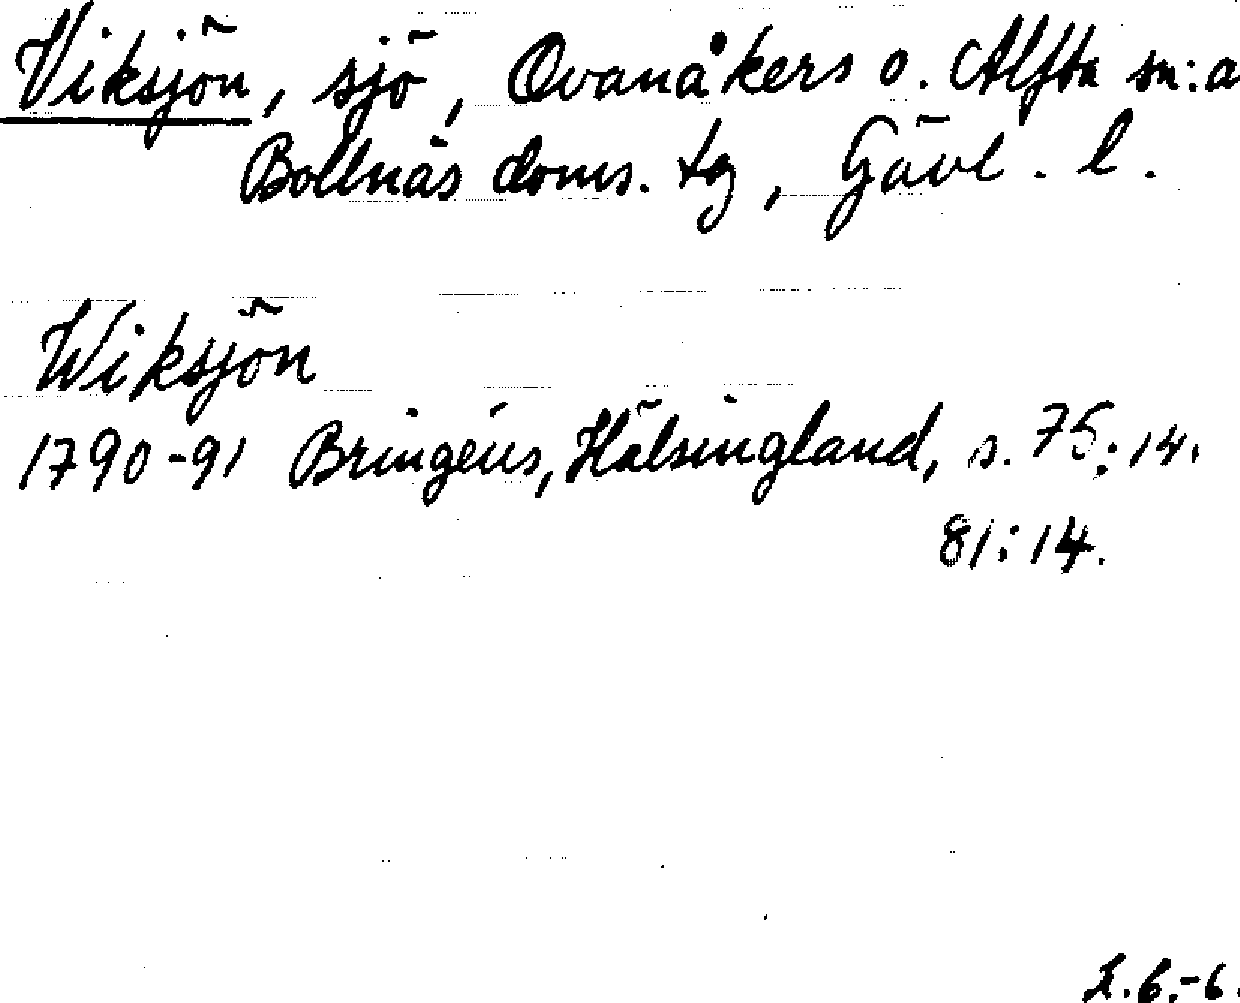 Viksjön, sjö, Ovanåkers o. Alfta sn:a
Bollnäs doms. tg, Gävl. l.
Wiksjön
1790-91 Bringéus, Hälsingland, s. 75:14.
81:14.